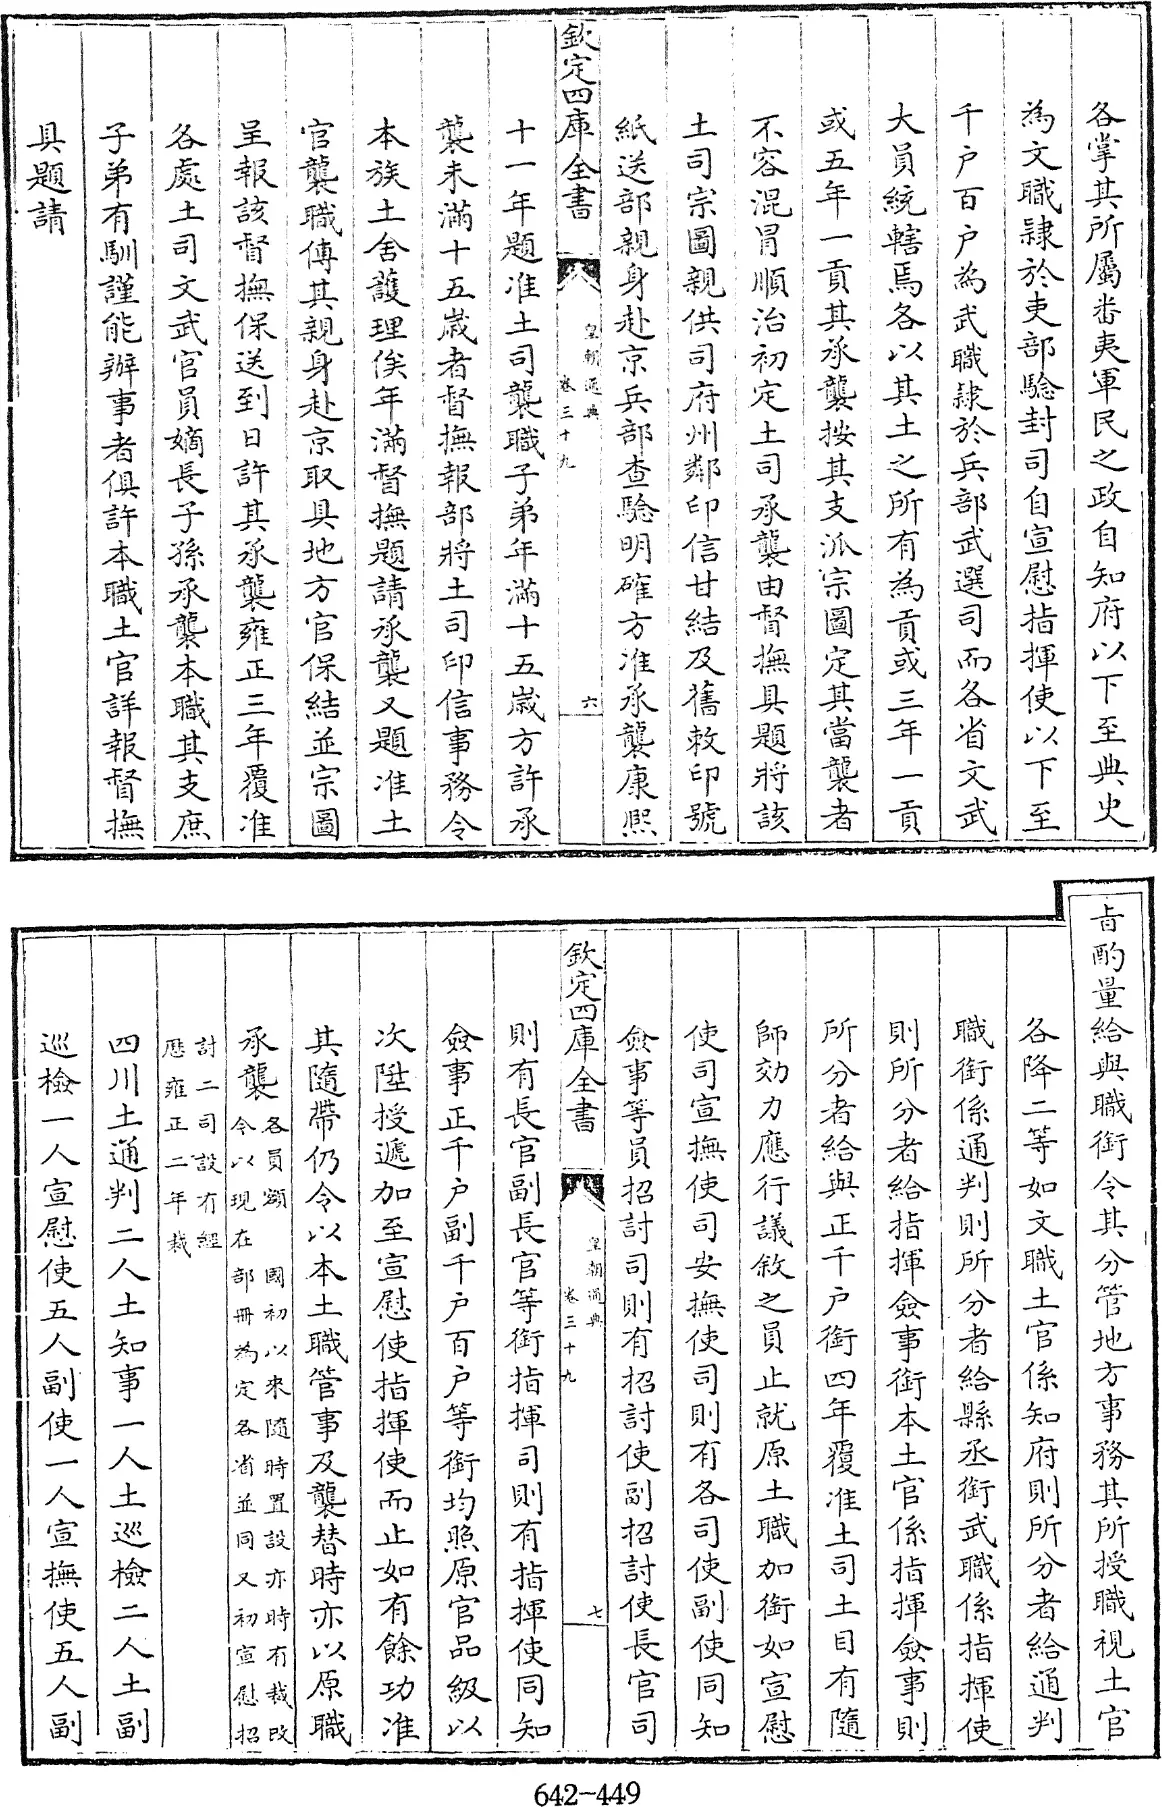 各掌其所屬畨夷軍民之政自知府以下至典史
為文職隷於吏部驗封司自宣慰指揮使以下至
千户百户為武職隷於兵部武選司而各省文武
大員統轄焉各以其土之所有為貢或三年一貢
或五年一貢其承襲按其支派宗圖定其當襲者
不容混冒順治初定土司承襲由督撫具題將該
土司宗圖親供司府州鄰印信甘結及舊敕印號
紙送部親身赴京兵部查驗明確方准承襲康熙
欽定四庫全書
皇朝通典
卷三十九
六
十一年題准土司襲職子弟年滿十五歲方許承
襲未滿十五歲者督撫報部將土司印信事務令
本族土舍護理俟年滿督撫題請承襲又題准土
官襲職傳其親身赴京取具地方官保結並宗圖
呈報該督撫保送到日許其承襲雍正三年覆准
各處土司文武官員嫡長子孫承襲本職其支庶
子弟有馴謹能辦事者俱許本職土官詳報督撫
具題請
旨酌量給與職銜令其分管地方事務其所授職視土官
各降二等如文職土官係知府則所分者給通判
職銜係通判則所分者給縣丞銜武職係指揮使
則所分者給指揮僉事銜本土官係指揮僉事則
所分者給與正千户銜四年覆准土司土目有隨
師効力應行議敘之員止就原土職加銜如宣慰
使司宣撫使司安撫使司則有各司使副使同知
僉事等員招討司則有招討使副招討使長官司
欽定四庫全書
皇朝通典
卷三十九
七
則有長官副長官等銜指揮司則有指揮使同知
僉事正千户副千户百户等銜均照原官品級以
次陞授遞加至宣慰使指揮使而止如有餘功准
其隨帶仍令以本土職管事及襲替時亦以原職
承襲各員額國初以來隨時置設亦時有裁改
令以現在部冊為定各省並同又初宣慰招
討二司設有經
歷雍正二年裁
四川土通判二人土知事一人土巡檢二人土副
巡檢一人宣慰使五人副使一人宣撫使五人副
642-449